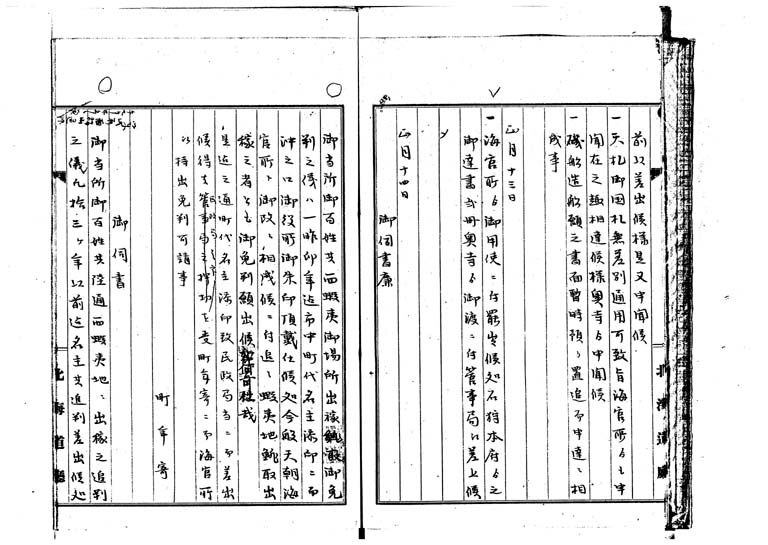 前以差出候様是又申聞候
一天札御国札無差別通用可致旨海官所ゟも申
聞在之趣相達候様奥寺ゟ申聞候
一磯船造船願之書面暫時預り置追而申達ニ相
成事
正月十三日
一海官所ゟ御用使ニ付罷出候処石狩本府ゟ之
御達書弐冊奥寺ゟ御渡ニ付管事局江差上候
正月十四日
御伺書廉
北海道廳
御当所御百姓共西蝦夷御場所出稼御免
判之儀ハ一昨卯年迄市中町代名主添印ニ而
沖之口御役所御朱印頂戴仕候処今般天朝海
官所ト御改ニ相成候ニ付追々蝦夷地鯡取出
稼之者とも御免判願出候
是迄之通町代名主添印致民政局当ニ而差出
候得は管事局之押切を受町年寄ニ而海官所
江持出免判可請事
町年寄
御伺書
御当所御百姓共陸通西蝦夷地江出稼之追判
之儀九拾三ヶ年以前迄名主共追判差出候処
北海道廳